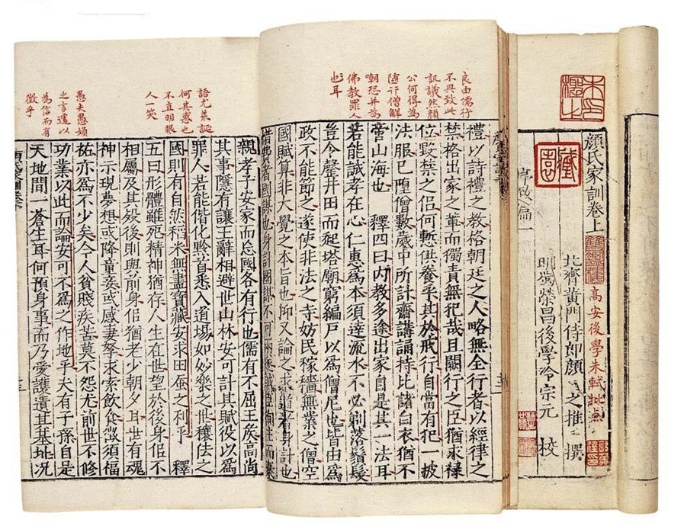 顔氏家訓卷上
北齊黄門侍郎顔之推撰
高安後學朱軾批點
明蜀榮昌後學冷宗元校
致篇一
良由儒行
不興致此
譏議然顔
公何得為
僧解
嘲恐并為
佛教罪人
也耳
禮以詩禮之教格朝廷之人略無全行者以經律之
禁格出家之輩而獨責無犯哉且闕行之臣猶求祿
位毀禁之侣何慙供養乎其於戒行自當有犯一披
法服已堕僧數歲中所計齋講誦持比諸白衣猶不
啻山海也 釋四曰内教多途出家自是其一法耳
若能誠孝在心仁惠為本須達流水不必剃落鬚髮
豈令罄井田而起塔廟窮編戸以為僧尼也皆由為
政不能節之遂使非法之寺妨民稼穡無業之僧空
國賦算非大覺之本旨也抑又論之求道者身計也
語尤荒誕
何其愚也
不直明眼
人一笑
愚夫愚婦
之言遽以
為信而有
徵乎
親孝子安家而忘國各有行也儒有不屈王侯高尚
其事隱有讓王辭相避世山林安可計其賦役以為
罪人若能偕化黔首悉入道場如妙樂之世穰佉之
國則有自然稻米無盡寳藏安求田蚕之利乎 釋
五曰形體雖死精神猶存人生在世望於後身佀不
相屬及其殁後則與前身佀猶老少朝夕耳世有魂
神示現夢想或降童妾或感妻孥求索飲食徵須福
祐亦為不少矣今人貧賤疾苦莫不怨尤前世不修
功業以此而論安可不為之作地乎夫有子孫自是
天地間一蒼生耳何預身事而乃愛護遺其基址况